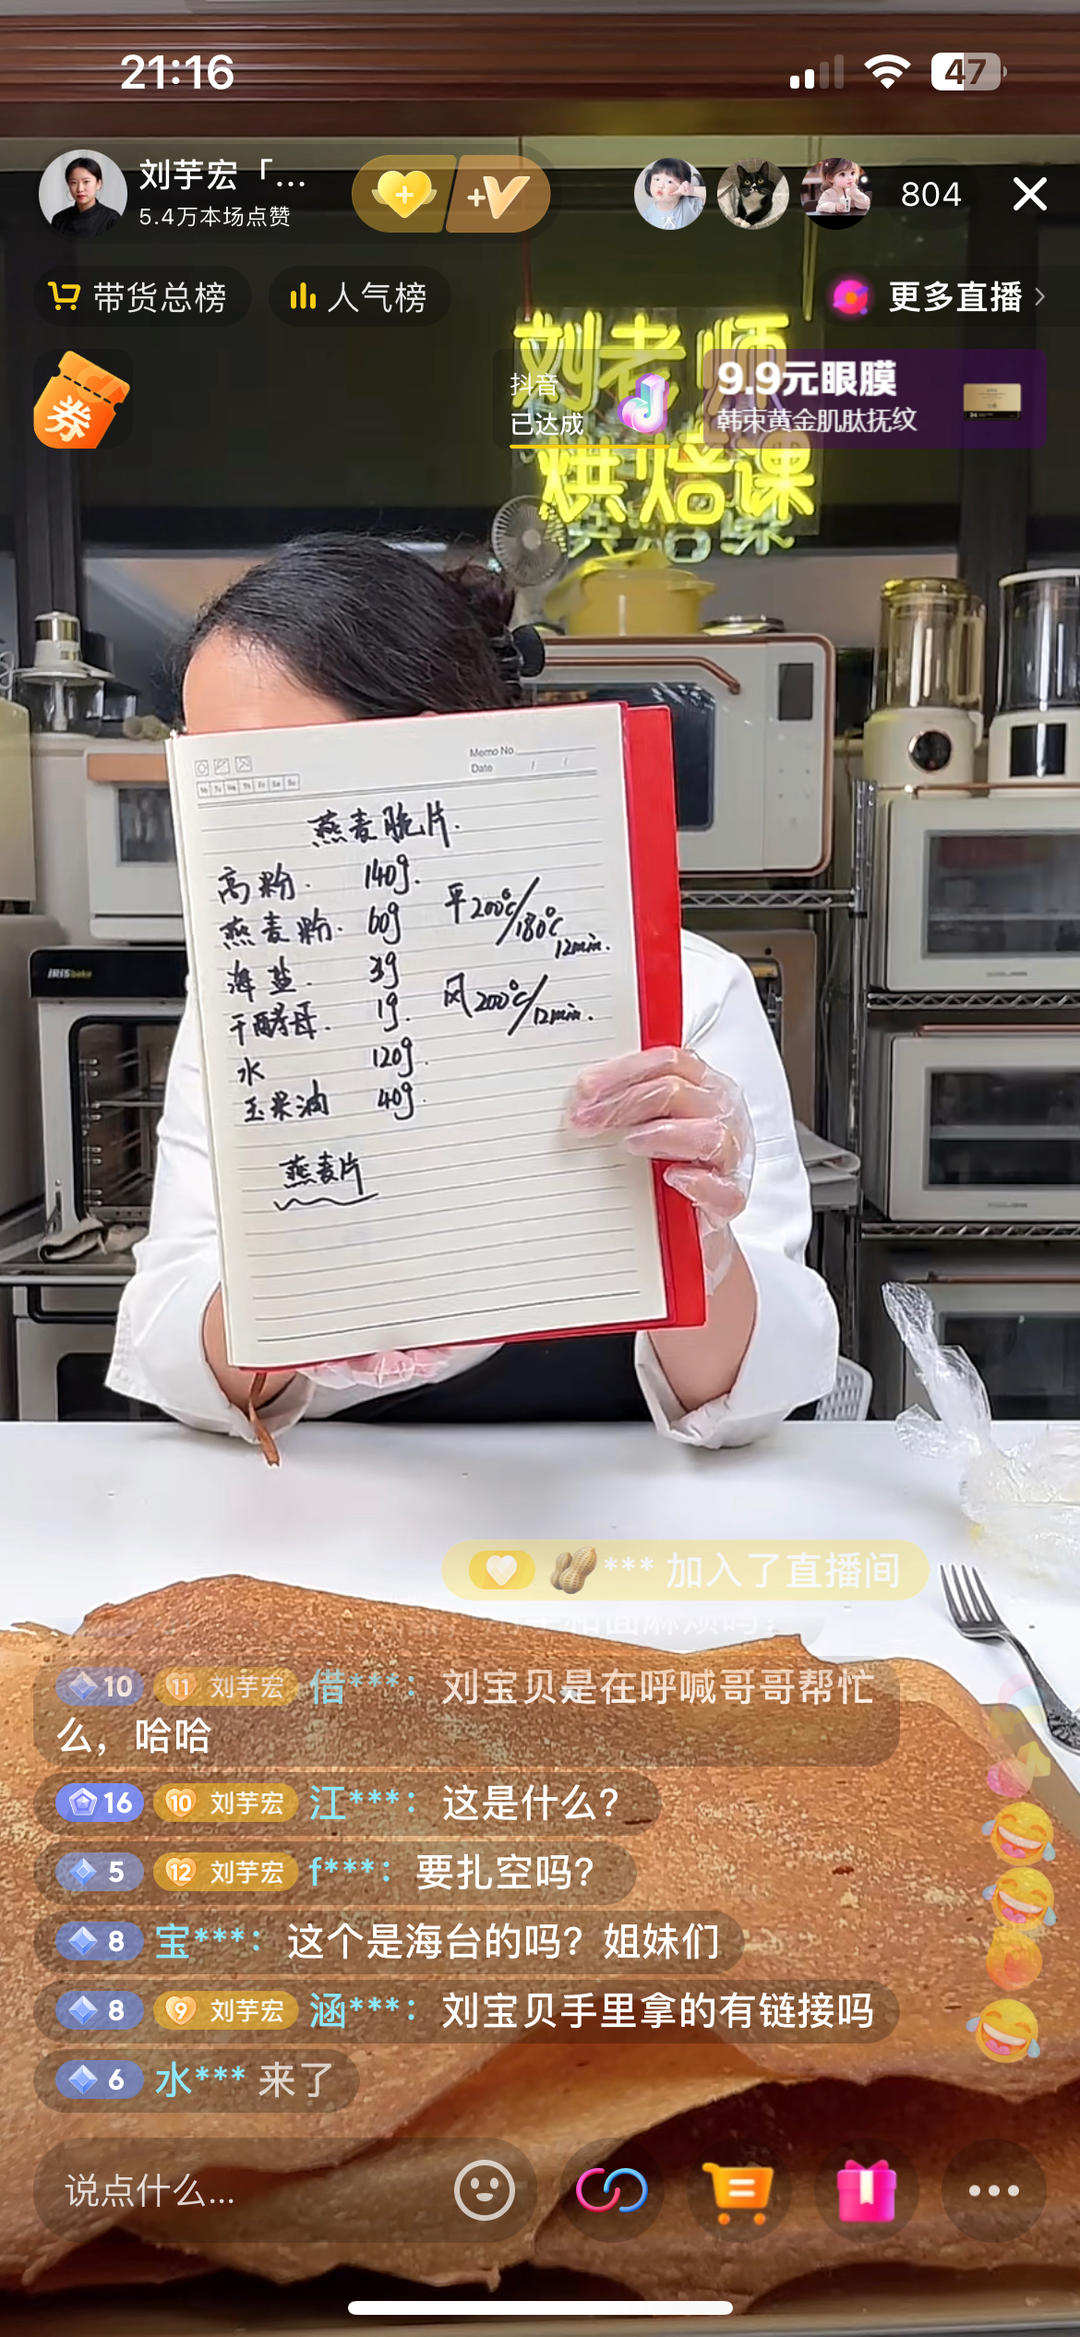 21:16
47
刘芋宏「...
5.4万本场点赞
+V
804
带货总榜
人气榜
更多直播
券
刘老师
烘焙课
抖音
已达成
9.9元眼膜
韩束黄金肌肽抚纹
Memo No.
Date / /
Mo Tu We Th Fr Sa Su
燕麦脆片.
高粉. 140g.
燕麦粉. 60g
海盐. 3g
干酵母. 1g.
水 120g.
玉米油 40g.
平200℃/180℃
12min.
风200℃/12min.
燕麦片
*** 加入了直播间
10 11 刘芋宏 借***：刘宝贝是在呼喊哥哥帮忙
么，哈哈
16 10 刘芋宏 江***：这是什么？
5 12 刘芋宏 f***：要扎空吗？
8 宝***：这个是海台的吗？姐妹们
8 9 刘芋宏 涵***：刘宝贝手里拿的有链接吗
6 水*** 来了
说点什么...